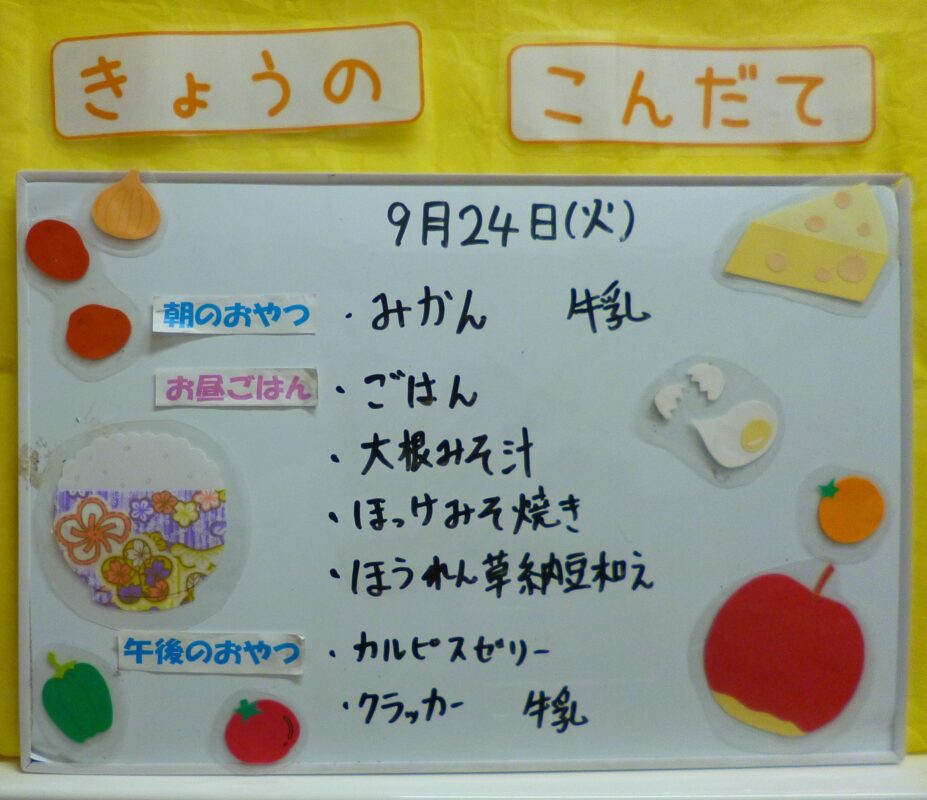 きょうの こんだて
9月24日(火)
朝のおやつ ・みかん 牛乳
お昼ごはん ・ごはん
・大根みそ汁
・ほっけみそ焼き
・ほうれん草納豆和え
午後のおやつ ・カルピスゼリー
・クラッカー 牛乳